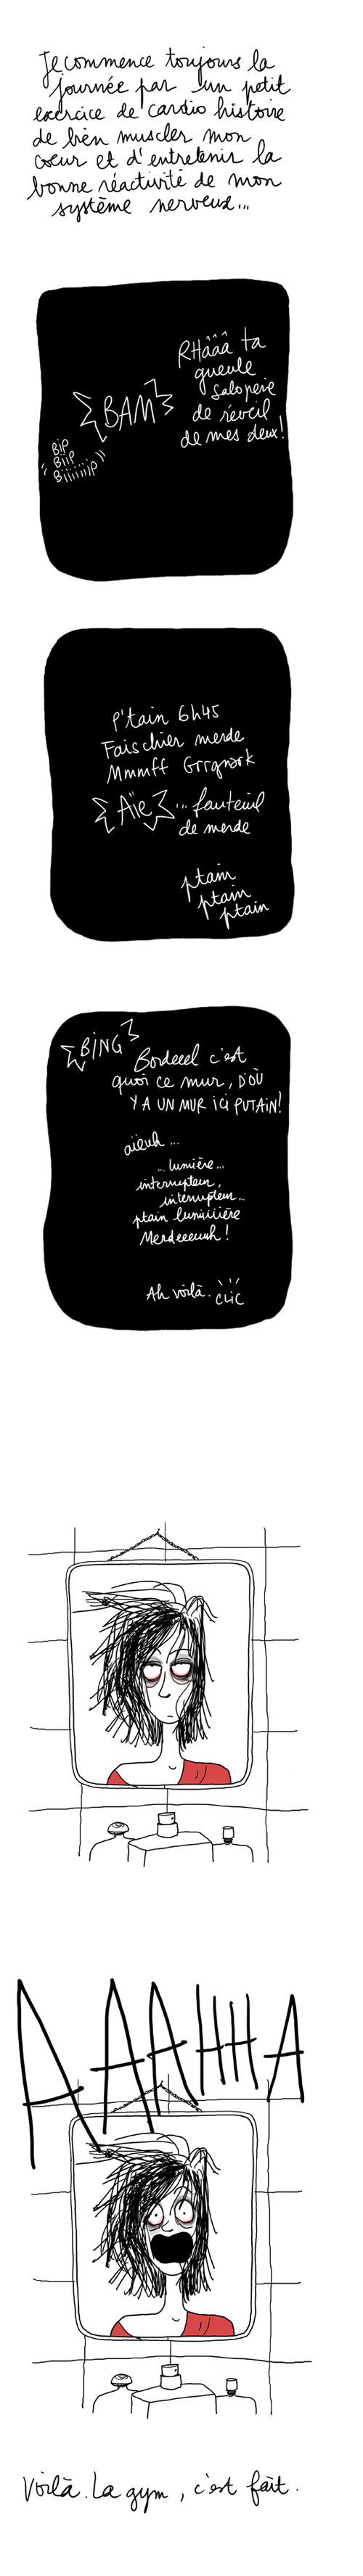 Je commence toujours la
journée par un petit
exercice de cardio histoire
de bien muscler mon
coeur et d'entretenir la
bonne réactivité de mon
système nerveux...
RHâââ ta
gueule
saloperie
de réveil
de mes deux!
BAM
Bip
Biip
Biiiiiip
P'tain 6h45
Fais chier merde
Mmmff Grrgnark
Aïe ... fauteuil
de merde
ptain
ptain
ptain
BING
Bordeeel c'est
quoi ce mur, D'OÙ
Y A UN MUR ICI PUTAIN!
aïeuh ...
... lumière...
interrupteur,
interrupteur...
ptain lumiiiière
Merdeeeuuh!
Ah voilà. CLIC
AAAHHA
Voilà. La gym, c'est fait.